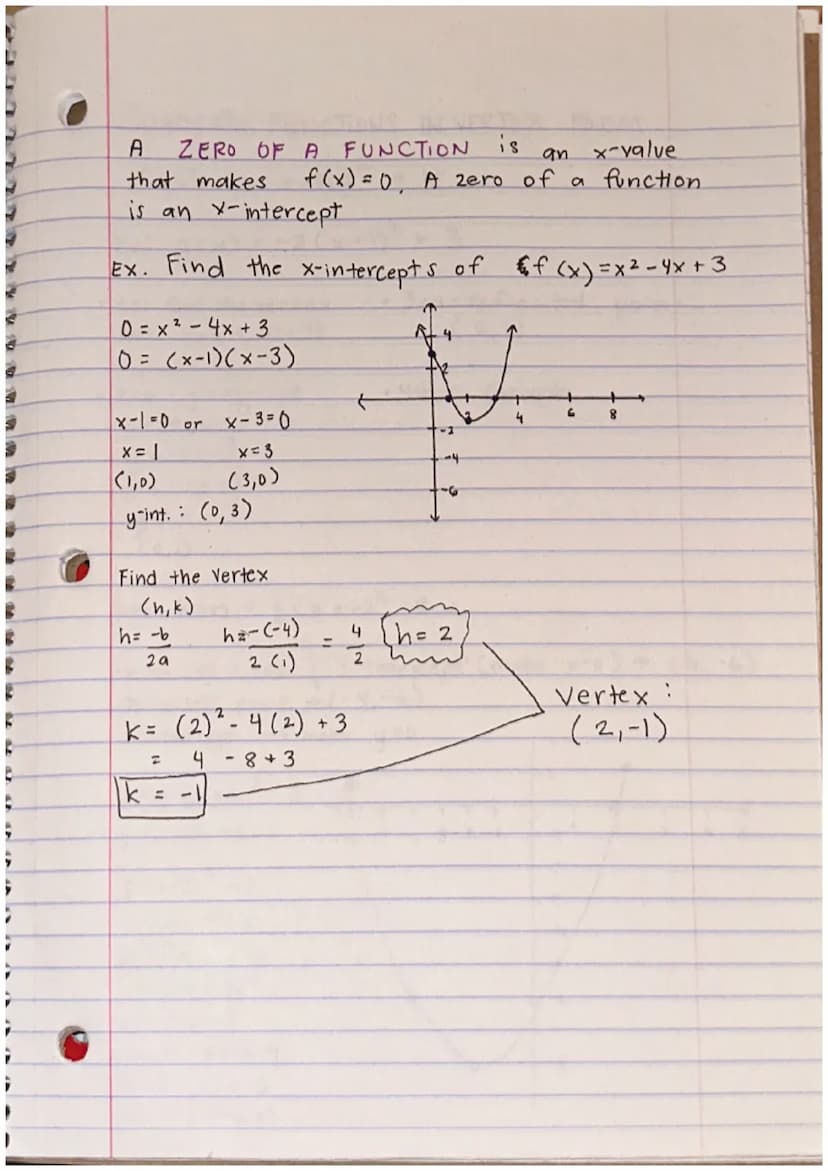 A ZERO OF A FUNCTION is an x-value
that makes f(x) = 0. A zero of a function
is an x-intercept
Ex. Find the x-intercepts of f(x) = x² - 4x + 3
0 = x² - 4x + 3
0 = (x-1)(x-3)
x-1=0 or x-3=0
x = 1 x=3
(1,0) (3,0)
y-int. : (0,3)
4
2
2 4 6 8
-2
-4
-6
Find the vertex
(h,k)
h= -b/2a h=-(-4)/2(1) = 4/2 h= 2
k= (2)² - 4(2) + 3
= 4 - 8 + 3
k = -1
Vertex :
(2,-1)